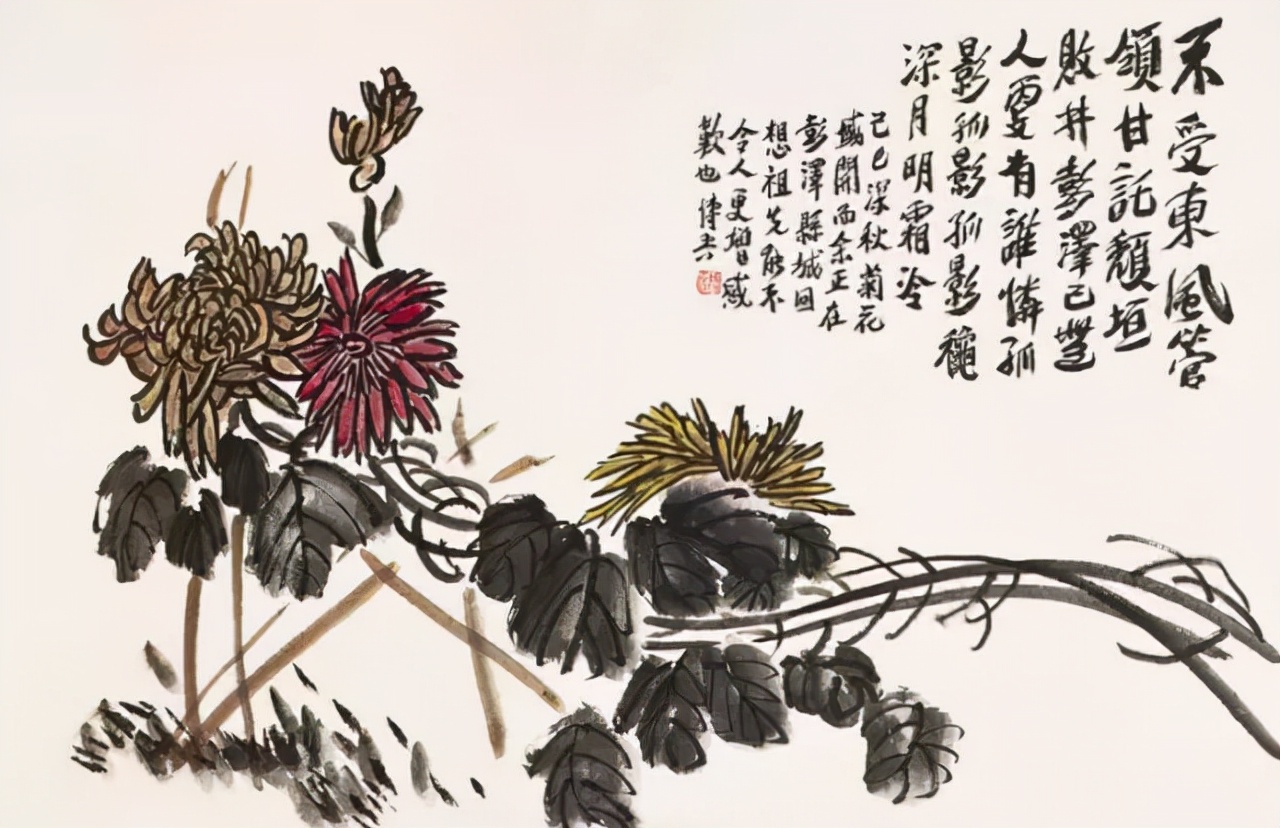 不受東風管
領甘託頹垣
敗井彭澤已無
人更有誰憐孤
影孤影孤影龝
深月明霜冷
己巳深秋菊花
盛開而余正在
彭澤縣城回
想祖先能不
令人更增感
歎也博吾